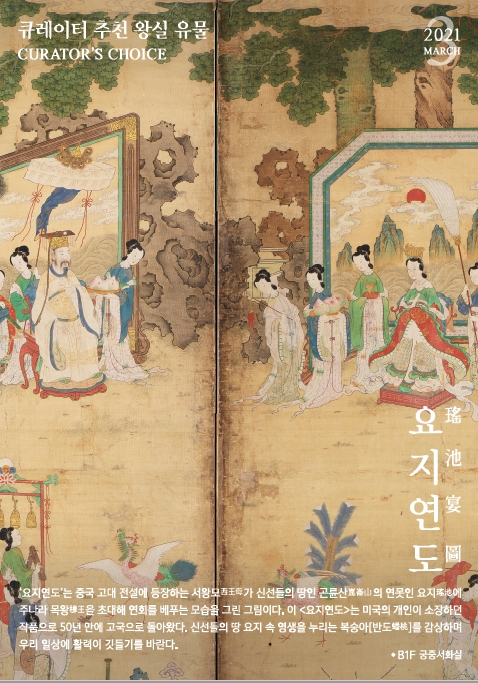 큐레이터 추천 왕실 유물
CURATOR'S CHOICE
2021
3
MARCH
요지연도
瑤池宴圖
'요지연도'는 중국 고대 전설에 등장하는 서왕모西王母가 신선들의 땅인 곤륜산崑崙山의 연못인 요지瑤池에
주나라 목왕穆王을 초대해 연회를 베푸는 모습을 그린 그림이다. 이 <요지연도>는 미국의 개인이 소장하던
작품으로 50년 만에 고국으로 돌아왔다. 신선들의 땅 요지 속 영생을 누리는 복숭아[반도蟠桃]를 감상하며
우리 일상에 활력이 깃들기를 바란다.
◆B1F 궁중서화실